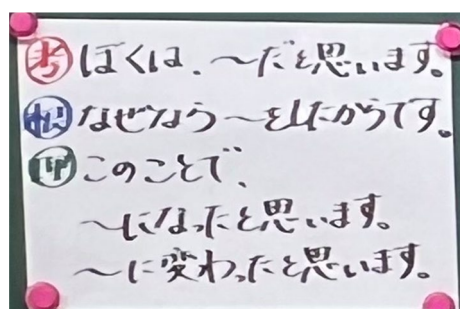 考 ぼくは、～だと思います。
根 なぜなら～をしたからです。
このことで、
～になったと思います。
～に変わったと思います。